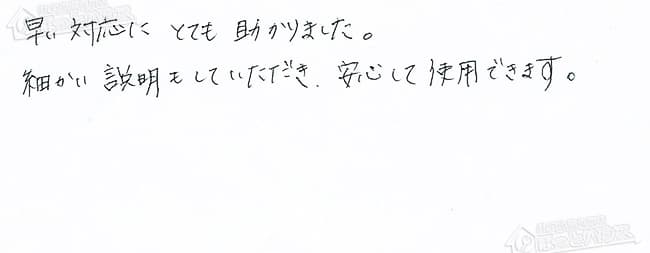 早い対応に とても 助かりました。
細かい 説明もしていただき、安心して使用できます。